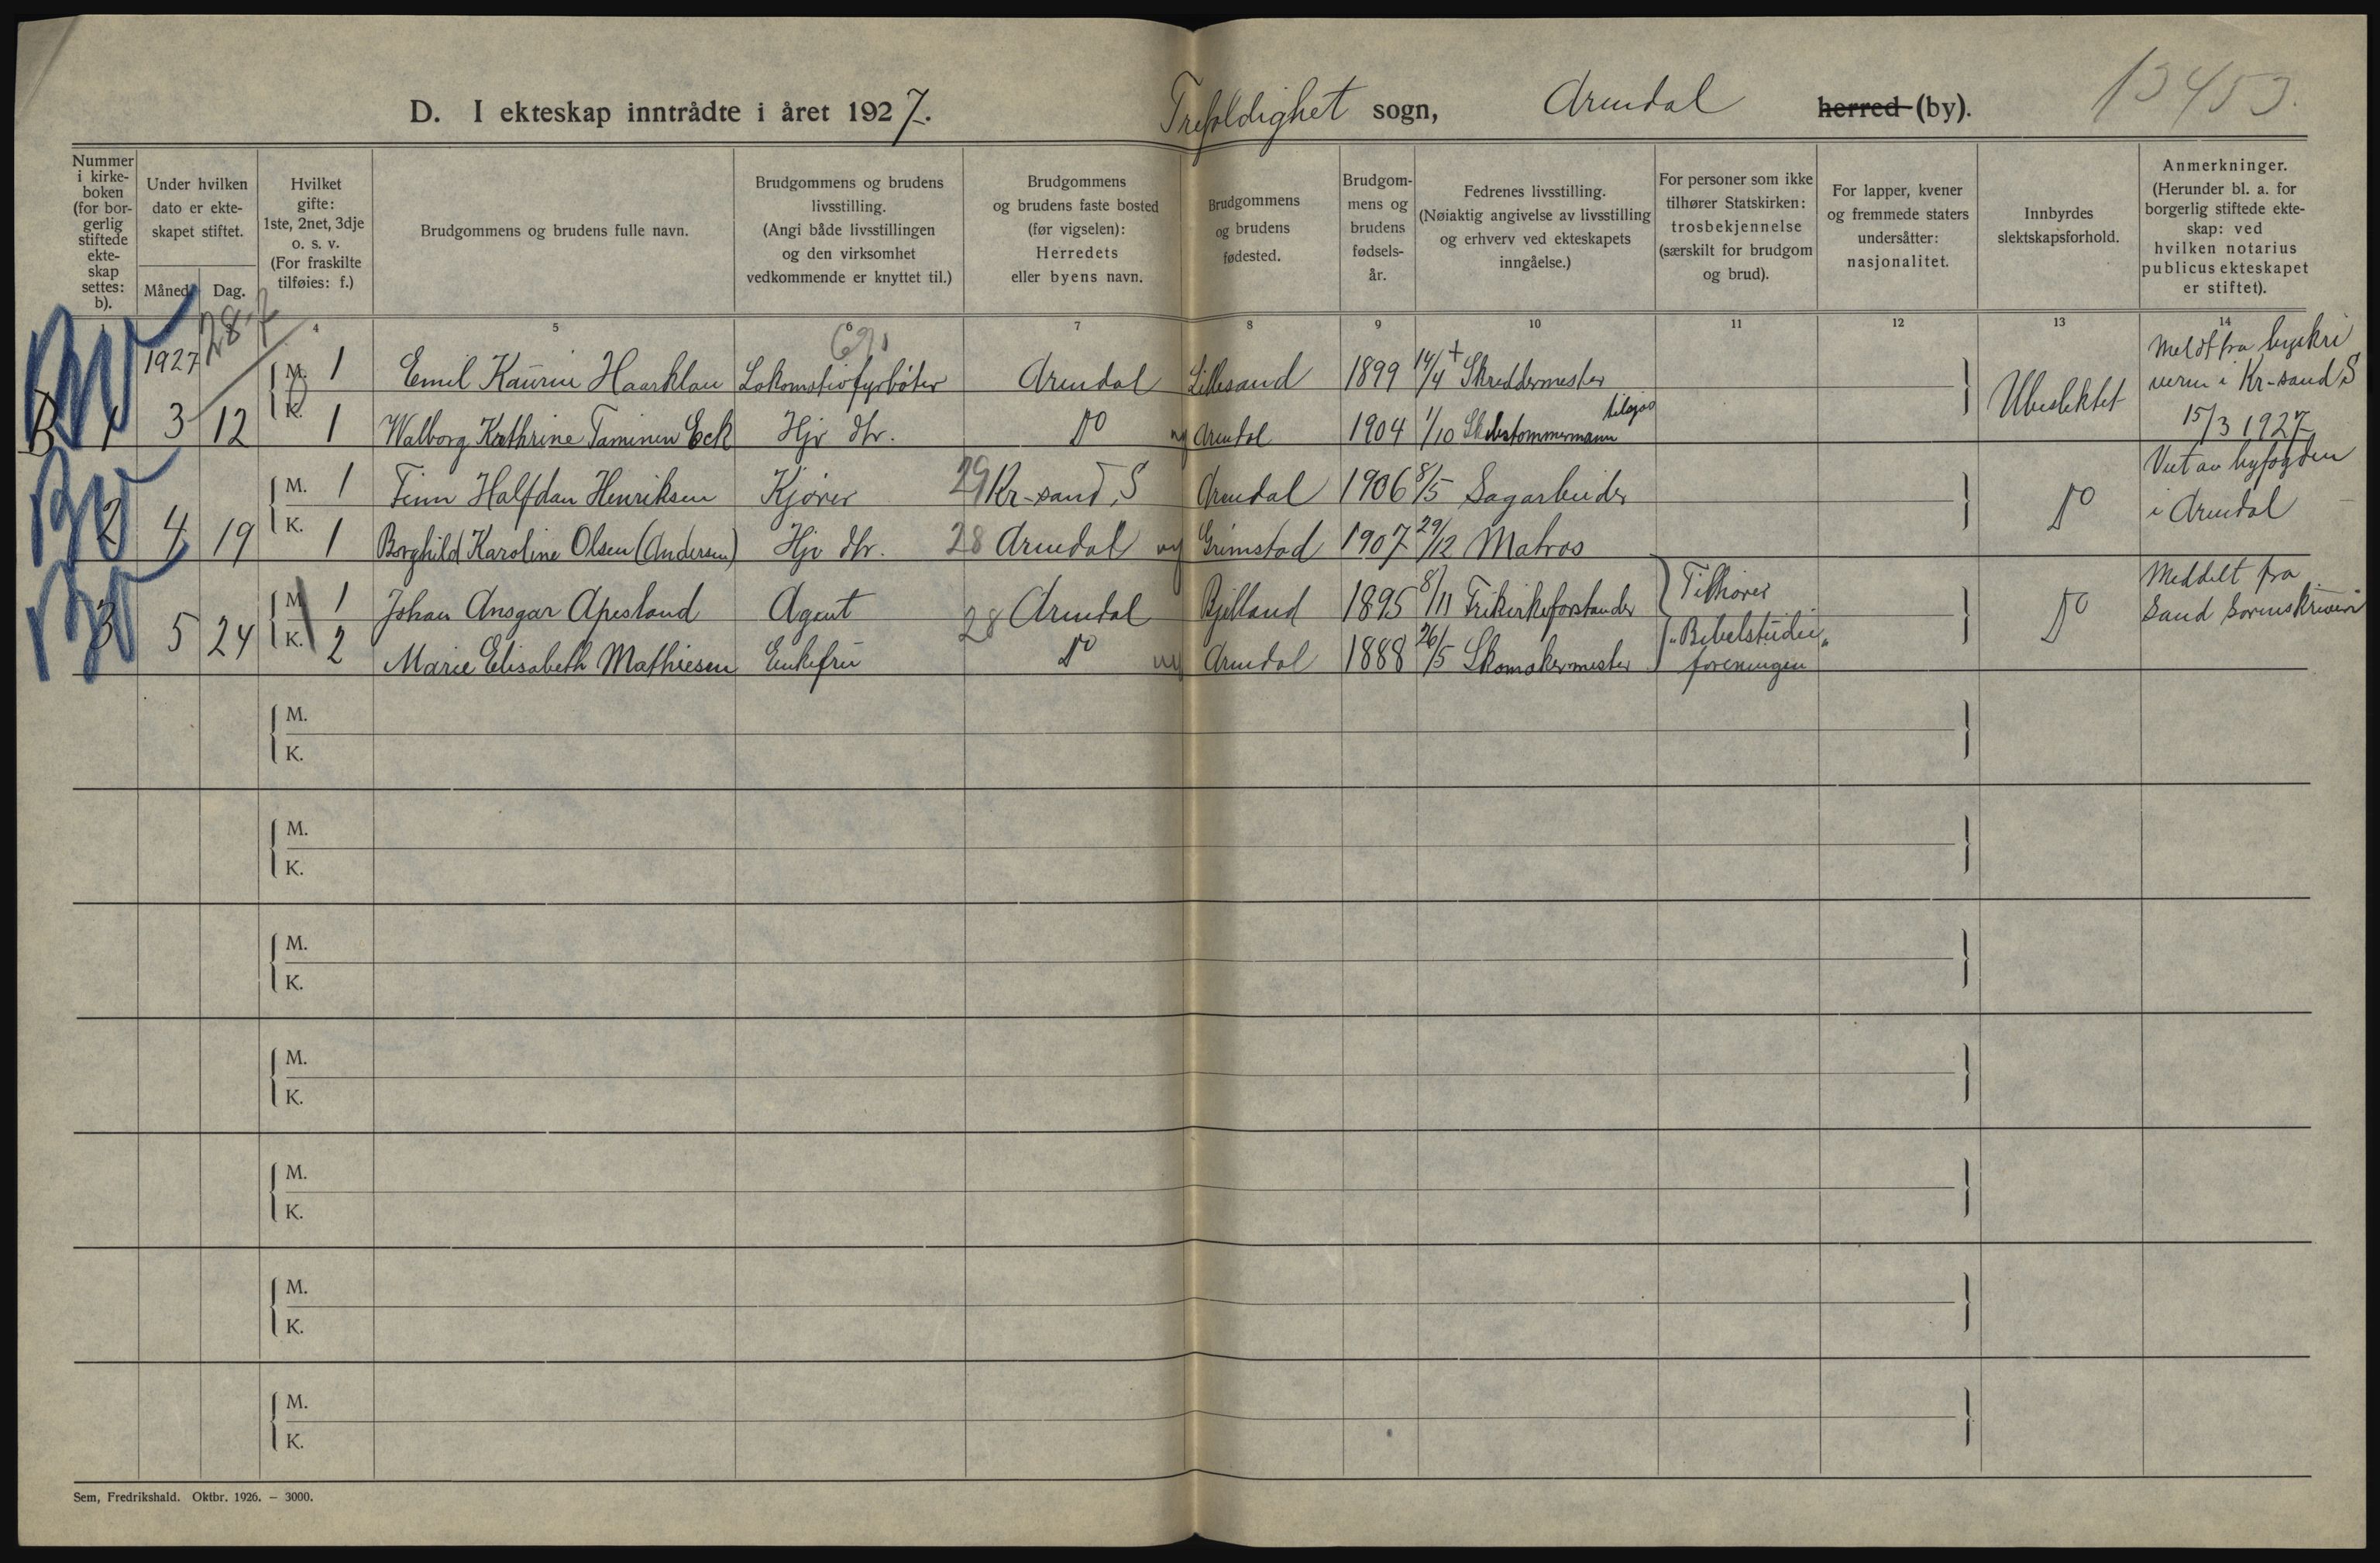 D. I ekteskap inntrådte i året 1927. Trefoldighet sogn, Arendal herred (by). 13453.
Nummer i kirkeboken (for borgerlig stiftede ekteskap settes: b).
Under hvilken dato er ekteskapet stiftet.
Måned. Dag.
Hvilket gifte: 1ste, 2net, 3dje o. s. v. (For fraskilte tilføies: f.)
Brudgommens og brudens fulle navn.
Brudgommens og brudens livsstilling. (Angi både livsstillingen og den virksomhet vedkommende er knyttet til.)
Brudgommens og brudens faste bosted (før vigselen): Herredets eller byens navn.
Brudgommens og brudens fødested.
Brudgommens og brudens fødselsår.
Fedrenes livsstilling. (Nøiaktig angivelse av livsstilling og erhverv ved ekteskapets inngåelse.)
For personer som ikke tilhører Statskirken: trosbekjennelse (særskilt for brudgom og brud).
For lapper, kvener og fremmede staters undersåtter: nasjonalitet.
Innbyrdes slektskapsforhold.
Anmerkninger. (Herunder bl. a. for borgerlig stiftede ekteskap: ved hvilken notarius publicus ekteskapet er stiftet).
4 5 6 7 8 9 10 11 12 13 14
1927 28
M. 1 Emil Kaurin Haarklau Lokomotivfyrbøter Arendal Lillesand 1899 14/4 + Skreddermester Meldt fra byskri
veren i Kr-sand S
B 1 3 12 K. 1 Walborg Kathrine Taminen Eck Hjv dtr. Do Arendal 1904 1/10 Skibstømmermann Ubeslektet 15/3 1927
M. 1 Finn Halfdan Henriksen Kjører 29 Kr-sand S Arendal 1906 8/5 Sagarbeider Viet av byfogden
2 4 19 K. 1 Borghild Karoline Olsen (Andersen) Hjv dtr. 28 Arendal Grimstad 1907 29/12 Matros Do i Arendal
M. 1 Johan Ansgar Apesland Agent 28 Arendal Bjelland 1895 8/11 Frikirkeforstander Tilhører Meddelt fra
3 5 24 K. 2 Marie Elisabeth Mathiesen Enkefru Do Arendal 1888 26/5 Skomakermester "Bibelstudie foreningen" Do Sand Sorenskriveri
M.
K.
M.
K.
M.
K.
M.
K.
M.
K.
M.
K.
M.
K.
Sem, Fredrikshald. Oktbr. 1926. — 3000.